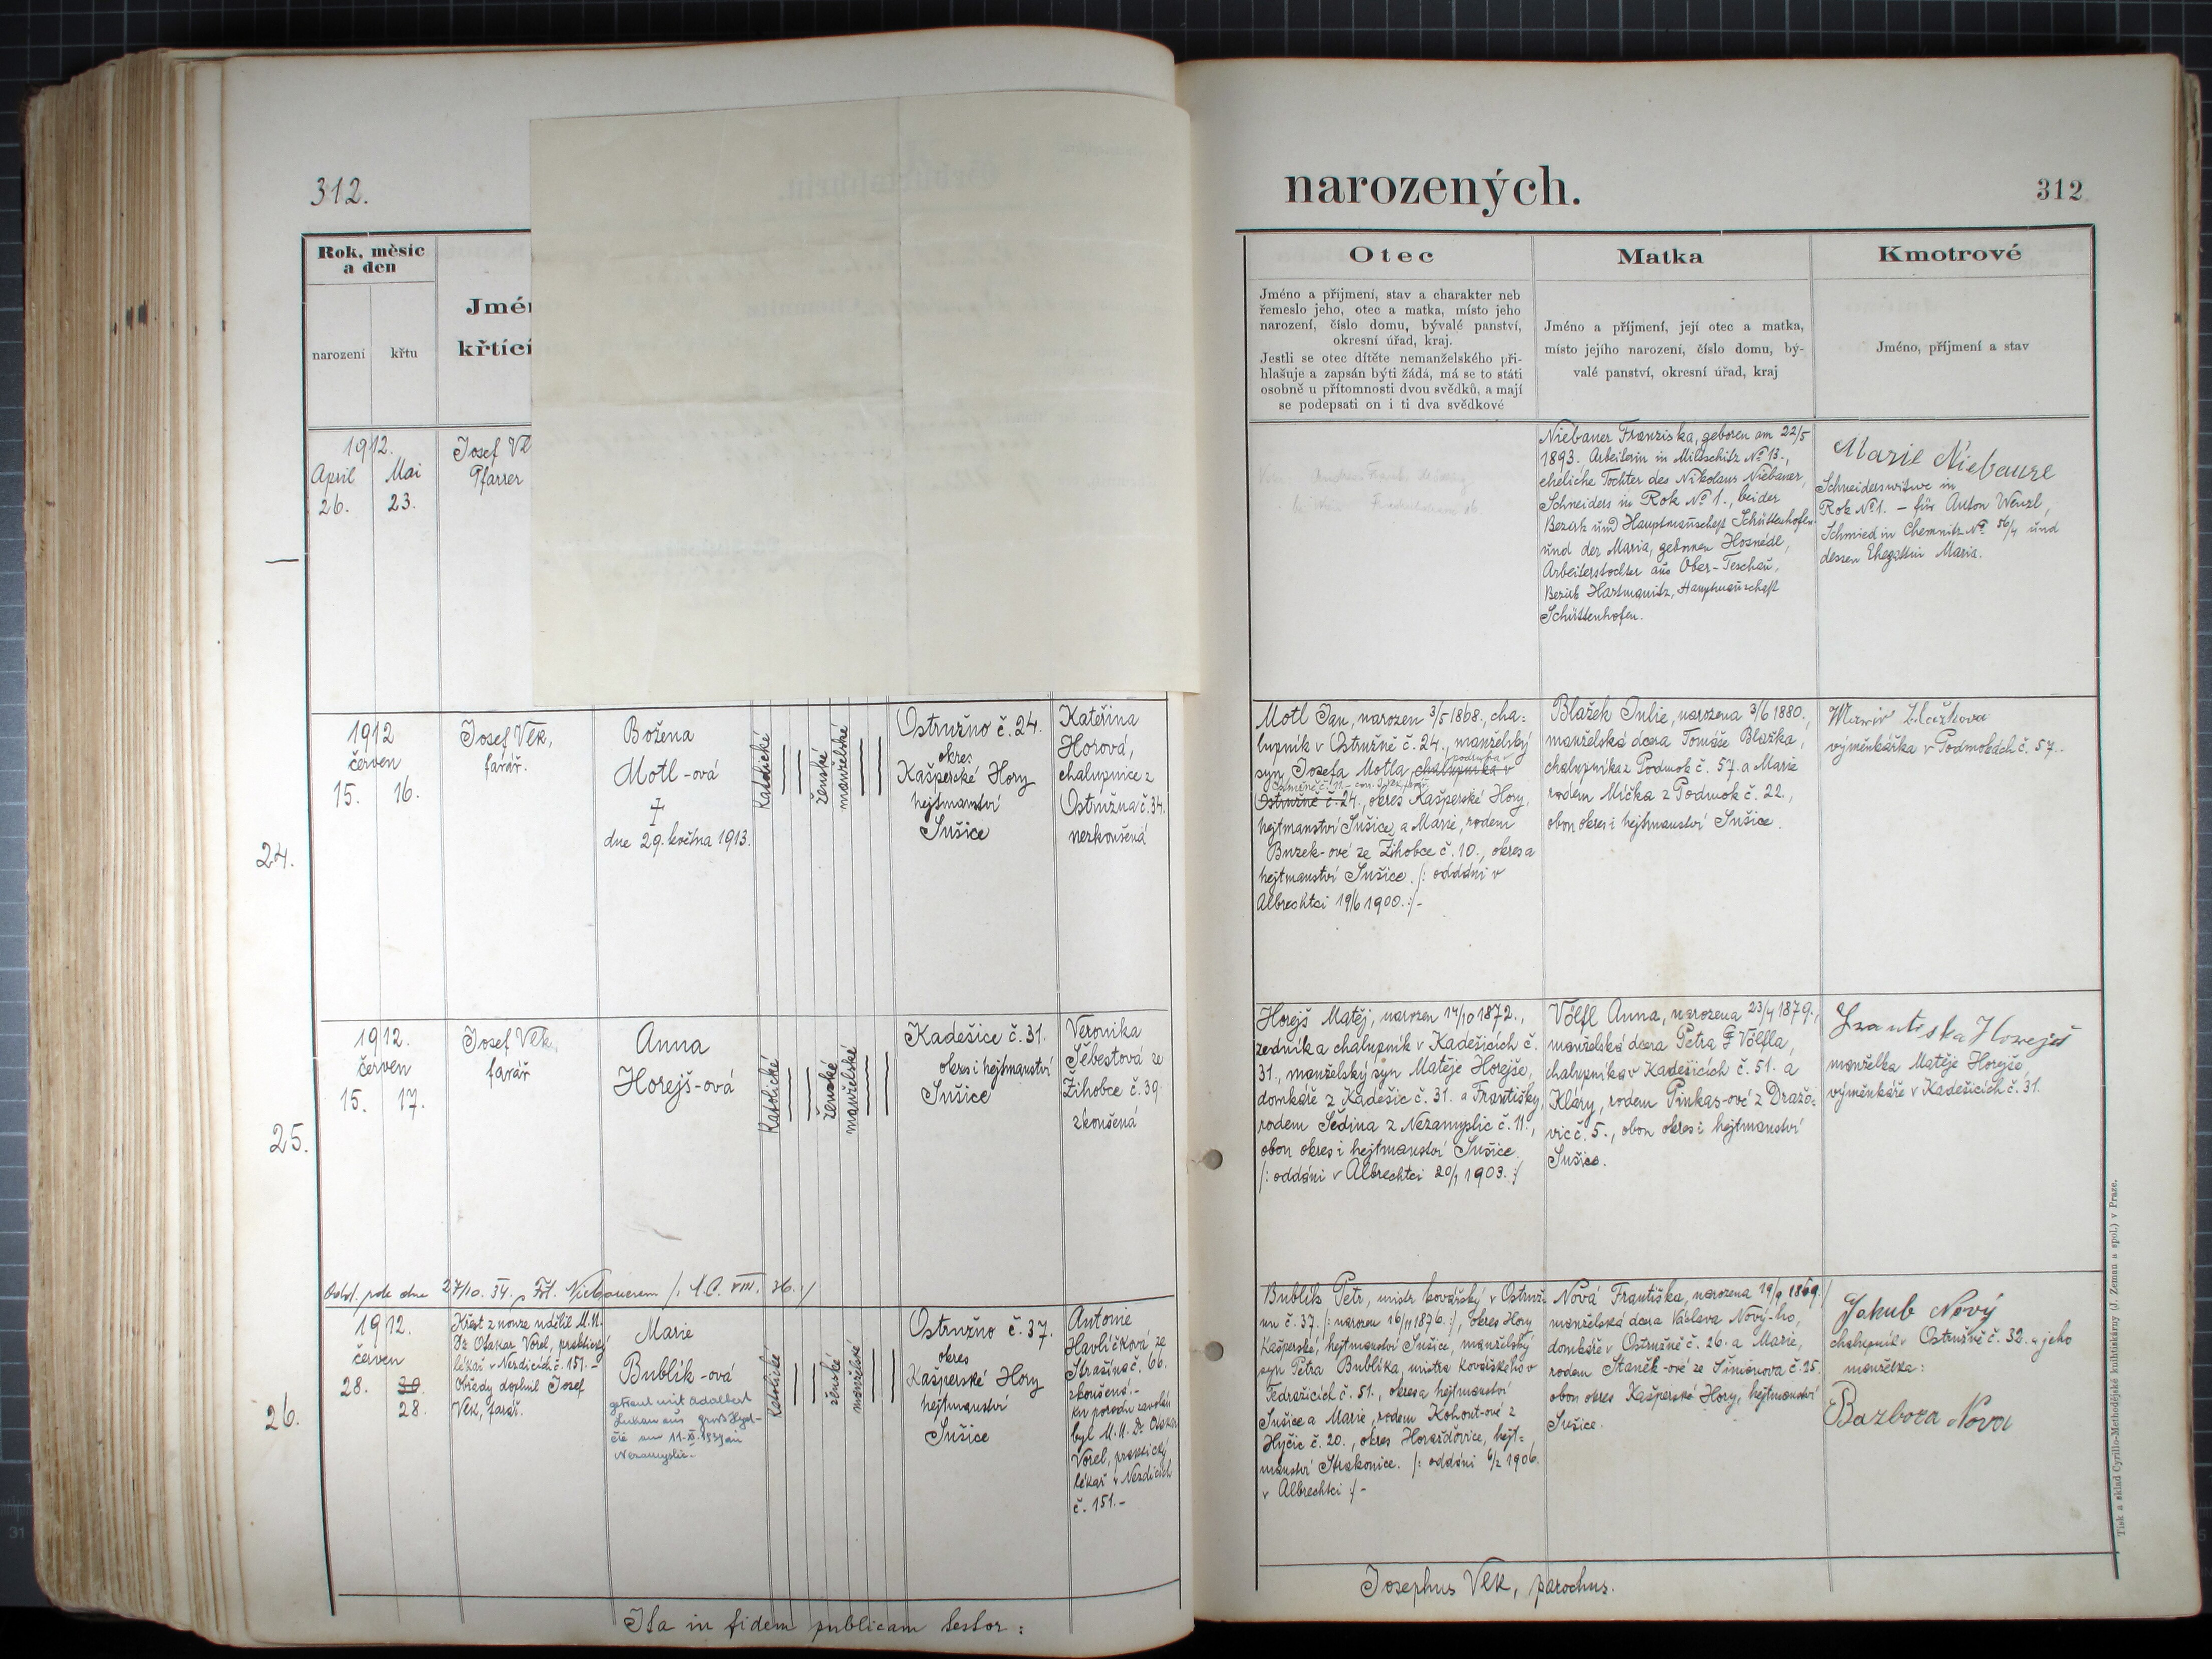 312.
Rok, měsíc
a den
narození
křtu
Jmén
křtící
1912.
April Mai
26. 23.
Josef Vl
Pfarrer
24.
1912
červen
15. 16.
Josef Vlk,
farář.
Božena
Motl-ová
†
dne 29. května 1913.
Katolické
ženské
manželské
Ostružno č. 24.
okres
Kašperské Hory
hejtmanství
Sušice
Kateřina
Horová,
chalupnice z
Ostružna č. 34.
nezkoušená
25.
1912.
červen
15. 17.
Josef Vlk,
farář
Anna
Horejš-ová
Katolické
ženské
manželské
Kadešice č. 31.
okres i hejtmanství
Sušice
Veronika
Šebestová ze
Žihobce č. 39
zkoušená
Odd. zde dne 27/10. 34. s Frt. Niebauerem
26.
1912.
červen
28. 30.
28.
Křest z nouze udělil M.U.
Dr Otakar Vorel, praktický
lékař v Nezdicích č. 151.-
Obřady doplnil Josef
Vlk, farář.
Marie
Bublík-ová
getraut mit Adalbert
Lukan aus
Katolické
ženské
manželské
Ostružno č. 37.
okres
Kašperské Hory
hejtmanství
Sušice
Antonie
Havlíčková ze
Strašína č. 66.
zkoušená.-
ku porodu zavolán
byl M.U. Dr Otakar
Vorel, praktický
lékař v Nezdicích
č. 151.-
Ita in fidem publicam testor:
narozených.
312
Otec
Jméno a příjmení, stav a charakter neb
řemeslo jeho, otec a matka, místo jeho
narození, číslo domu, bývalé panství,
okresní úřad, kraj.
Jestli se otec dítěte nemanželského při-
hlašuje a zapsán býti žádá, má se to státi
osobně u přítomnosti dvou svědků, a mají
se podepsati on i ti dva svědkové
Matka
Jméno a příjmení, její otec a matka,
místo jejího narození, číslo domu, bý-
valé panství, okresní úřad, kraj
Kmotrové
Jméno, příjmení a stav
Niebauer Franziska, geboren am 22/5
1893. Arbeiterin in Miltschitz No 13.,
eheliche Tochter des Nikolaus Niebauer,
Schneiders in Rok No 1., beider
Bezirk und Hauptmanschaft Schüttenhofen
und der Maria, gebornen Hosnédl,
Arbeiterstochter aus Ober-Teschau,
Bezirk Hartmanitz, Hauptmanschaft
Schüttenhofen.
Marie Niebaure
Schneiderswitwe in
Rok No 1. - für Anton Wenzl,
Schmied in Chemnitz No 56/4 und
dessen Ehegattin Maria.
Motl Jan, narozen 3/5 1868., cha-
lupník v Ostružně č. 24., manželský
syn Josefa Motla, podruha chalupníka v
Ostružně č. 24., okres Kašperské Hory,
hejtmanství Sušice, a Marie, rodem
Buzek-ové ze Žihobce č. 10., okres a
hejtmanství Sušice. /: oddáni v
Albrechtci 19/6 1900. :/-
Blažek Julie, narozena 3/6 1880.,
manželská dcera Tomáše Blažka,
chalupníka z Podmok č. 57. a Marie
rodem Mička z Podmok č. 22.,
obou okres i hejtmanství Sušice.
výměnkářka v Podmokách č. 57.-
Horejš Matěj, narozen 14/10 1872.,
zedník a chalupník v Kadešicích č.
31., manželský syn Matěje Horejše,
domkáře z Kadešic č. 31. a Františky,
rodem Šedina z Nezamyslic č. 11.,
obou okres i hejtmanství Sušice.
/: oddáni v Albrechtci 20/1 1903. :/
Völfl Anna, narozena 23/4 1879.,
manželská dcera Petra Völfla,
chalupníka v Kadešicích č. 51. a
Kláry, rodem Pinkas-ové z Dražo-
vic č. 5., obou okres i hejtmanství
Sušice.
Frantiska Horejs
manželka Matěje Horejše,
výměnkáře v Kadešicích č. 31.
Bublík Petr, mistr kovářský v Ostruž-
nu č. 37. /: narozen 16/11 1876. :/, okres Hory
Kašperské, hejtmanství Sušice, manželský
syn Petra Bublíka, mistra kovářského v
Tedražicích č. 51., okres a hejtmanství
Sušice a Marie, rodem Kohout-ové z
Hyčic č. 20., okres Horažďovice, hejt-
manství Strakonice. /: oddáni 6/2 1906.
v Albrechtci :/-
Nová Františka, narozena 19/9 1869.,
manželská dcera Václava Nový-ho,
domkáře v Ostružně č. 26. a Marie,
rodem Staněk-ové ze Šimanova č. 25.
obou okres Kašperské Hory, hejtmanství
Sušice.
Jakub Nový
chalupník v Ostružně č. 32. a jeho
manželka:
Barbora Nova
Josephus Vlk, parochus.
Tisk a sklad Cyrillo-Methodějské knihtiskárny (J. Zeman a spol.) v Praze.